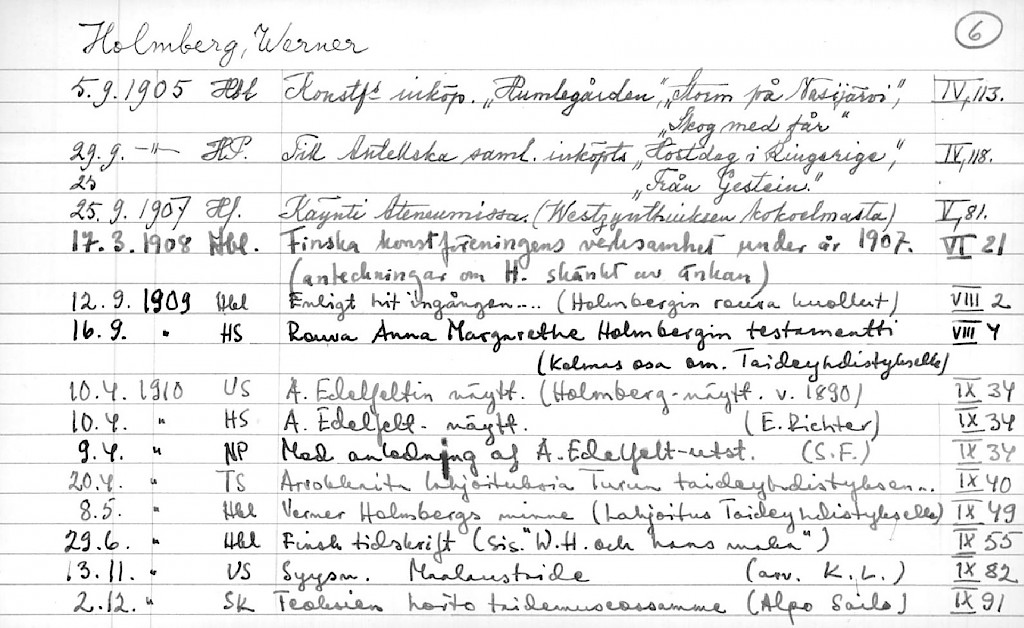 Holmberg, Werner 6
5.9.1905 Hbl Konstf: inköp. „Humlegården", „Storm på Näsijärvi", IV, 113.
„Skog med får"
29.9. -"- HP. Till Antellska saml. inköpts „Höstdag i Ringerige", IV, 118.
25 „Från Gestein."
25.9.1907 Hf. Käynti Ateneumissa. (Westzynthiuksen kokoelmasta) V, 81.
17.3.1908 Hbl. Finska konstföreningens verksamhet under år 1907. VI 21
(anteckningar om H. skänkt av änkan)
12.9. 1909 Hbl Enligt hit ingången.... (Holmbergin rouva kuollut) VIII 2
16.9. " HS Rouva Anna Margarethe Holmbergin testamentti VIII 4
(Kolmas osa om. Taideyhdistykselle)
10.4. 1910 US A. Edelfeltin näytt. (Holmberg-näytt. v. 1890) IX 34
10.4. " HS A. Edelfelt- näytt. (E. Richter) IX 34
9.4. " NP Med anledning af A. Edelfelt-utst. (S.F.) IX 34
20.4. " TS Arvokkaita lahjoituksia Turun taideyhdistyksen.. IX 40
8.5. " Hbl Verner Holmbergs minne (Lahjoitus Taideyhdistykselle) IX 49
29.6. " Hbl Finsk tidskrift (Sis. "W.H. och hans maka") IX 55
13.11. " US Syysn. Maalaustaide (arv. K.L.) IX 82
2.12. " SK Teoksien hoito taidemuseossamme (Alpo Sailo) IX 91